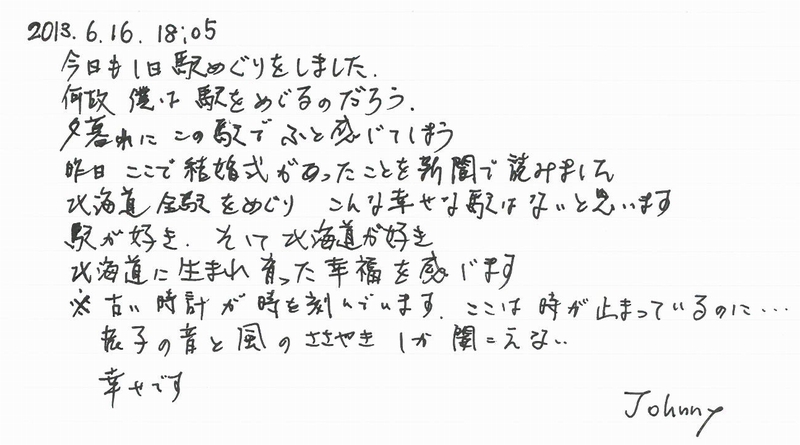 2013.6.16. 18:05
今日も1日駅めぐりをしました.
何故 僕は 駅をめぐるのだろう.
夕暮れに この駅で ふと感じてしまう
昨日 ここで結婚式があったことを新聞で読みました
北海道 全駅をめぐり こんな幸せな駅はないと思います
駅が好き. そして北海道が好き
北海道に生まれ育った幸福を感じます
※古い時計が時を刻んでいます. ここは時が止まっているのに…
振子の音と風のささやきしか聞こえない
幸せです
Johnny